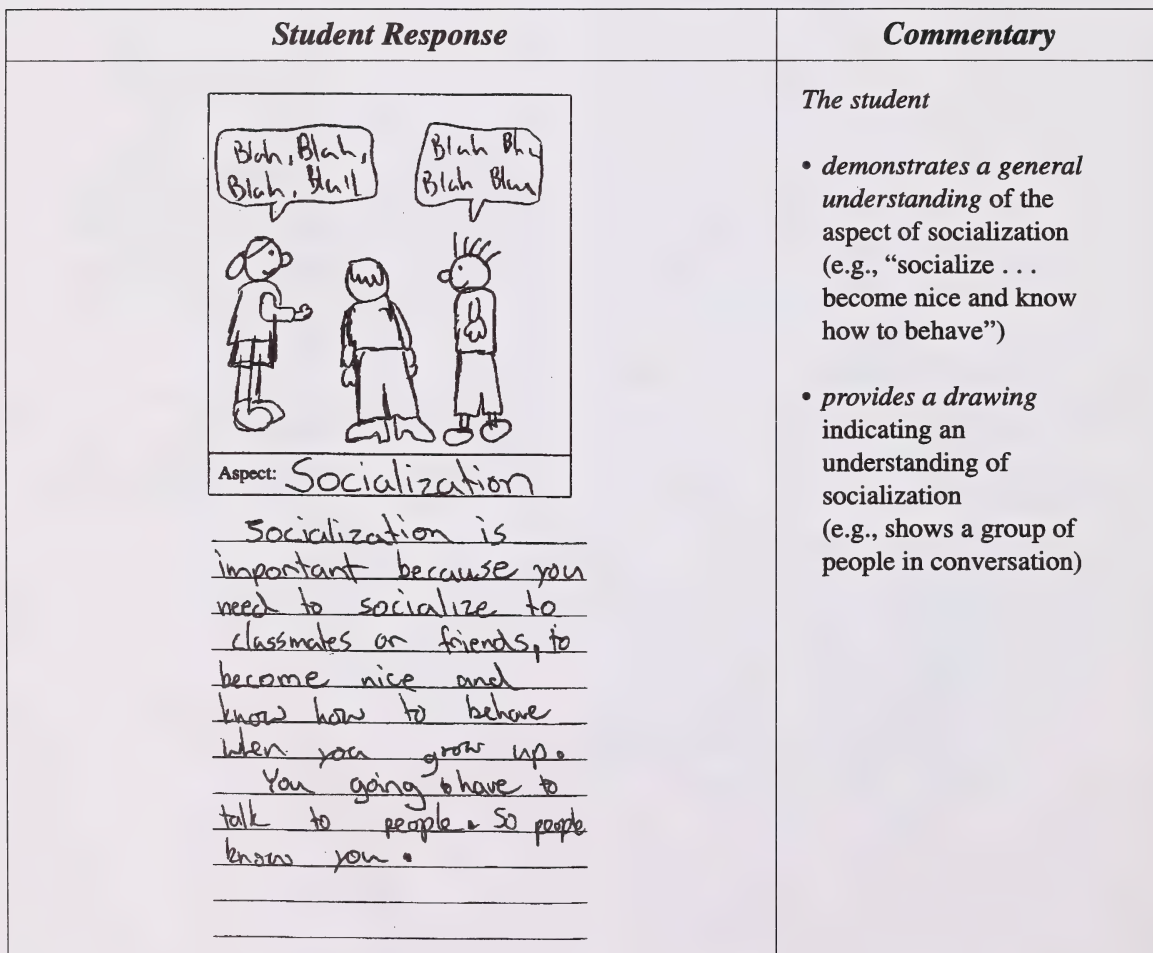 Student Response
Blah, Blah,
Blah, Blah
Blah
Blah
Aspect: Socialization
Socialization is
important because you
need to socialize to
classmates or friends, to
become nice and
know how to behave
when you grow up.
You going to have to
talk to people. So people
know you.
Commentary
The student
• demonstrates a general
understanding of the
aspect of socialization
(e.g., “socialize . . .
become nice and know
how to behave”)
• provides a drawing
indicating an
understanding of
socialization
(e.g., shows a group of
people in conversation)